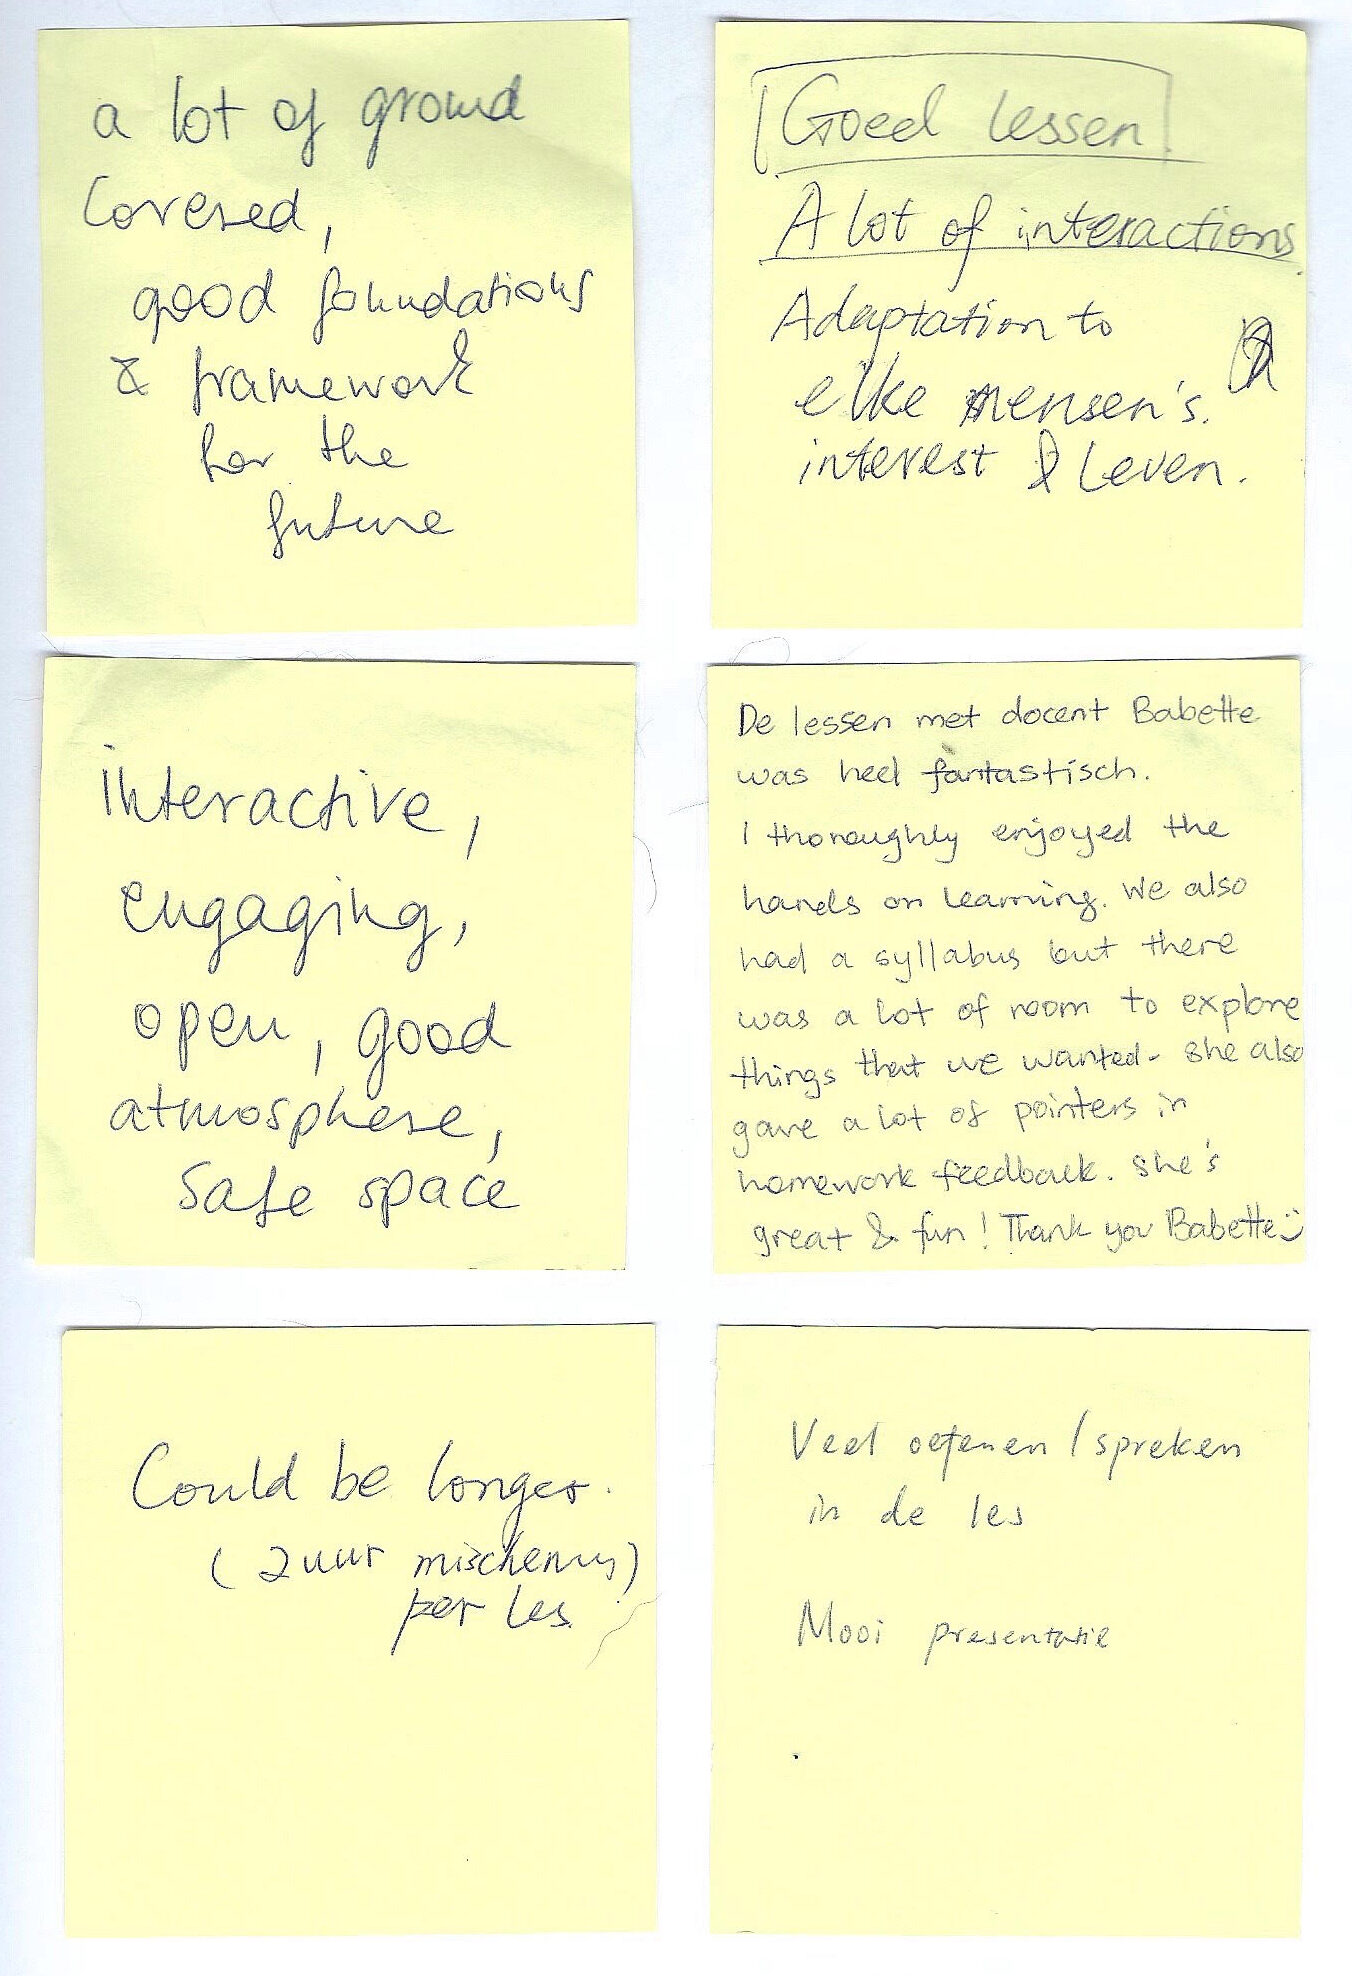 a lot of ground
Covered,
good foundations
& framework
for the
future
Goed lessen
A lot of interactions
Adaptation to
elke mensen's.
interest & Leven.
interactive,
engaging,
open, good
atmosphere,
Safe space
De lessen met docent Babette
was heel fantastisch.
I thoroughly enjoyed the
hands on learning. We also
had a syllabus but there
was a lot of room to explore
things that we wanted. She also
gave a lot of pointers in
homework feedback. She's
great & fun! Thank you Babette :)
Could be longer.
(2 uur
per les
Veel oefenen / spreken
in de les
Mooi presentatie